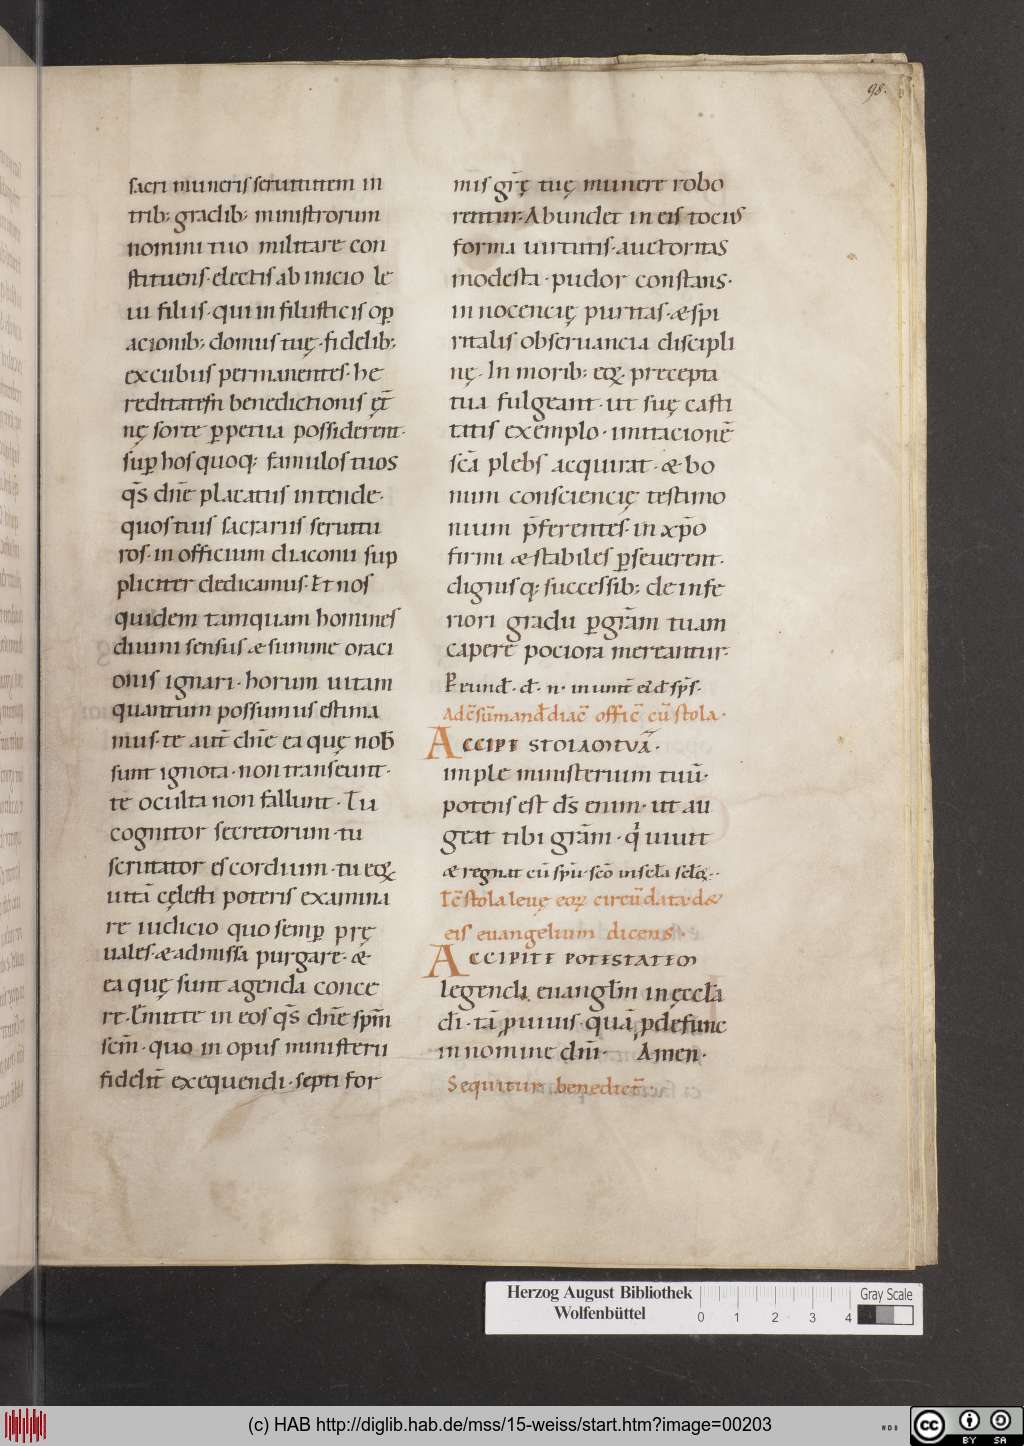 98.
sacri muneris seruitutem in
trib; gradib; ministrorum
nomini tuo militare con
stituens· electis ab inicio le
ui filiis· qui in filisticis op̄
acionib; domus tuę· fidelib;
excubiis permanentes· he
reditatē benedictionis ęt̄
nę sorte ꝑpetua possiderent·
suꝑ hos quoq; famulos tuos
q̄s dn̄e placatus intende·
quos tuis sacrariis seruitu
ros· in officium diaconii sup
pliciter dedicamus· Et nos
quidem tamquam homines
diuini sensus & summe oraci
onis ignari· horum uitam
quantum possumus estima
mus· te aut̄ dn̄e ea quę nob̄
sunt ignota· non transeunt·
te oculta non fallunt· Tu
cognitor secretorum· tu
scrutator es cordium· tu eoꝝ
uitā cęlesti poteris examina
re iudicio quo semꝑ prę
uales· & admissa purgare· &
ea quę sunt agenda conce
re· Em̄itte in eos q̄s dn̄e sp̄m
sc̄m· quo in opus ministerii
fidelit̄ exequendi· septi for
mis gr̄ę tuę munere robo
rentur· Abundet in eis tocius
forma uirtutis· auctoritas
modesta· pudor constans·
innocencię puritas· & spi
ritalis obseruancia discipli
nę· In morib; eoꝝ precepta
tua fulgeant· ut suę casti
tatis exemplo· imitacionē
sc̄ā plebs acquirat· & bo
num consciencię testimo
nium p̄ferentes· in xp̄o
firmi & stabiles ꝑseuerent·
dignisq; successib; de infe
riori gradu ꝑ gr̄am tuam
capere pociora mereantur·
P̄ eund̄· d̄· n̄· in unit̄ ei'd̄ sp̄s·
Ad c̄sūmand̄ diac̄ offic̄ cū stola·
Accipe stolam tuā·
imple ministerium tuū·
potens est d̄s enim· ut au
geat tibi gr̄am· q' uiuit
& regnat cū sp̄u sc̄o in sc̄la sc̄loꝝ·
Tc̄ stola leuę eoꝝ circūdata· d&
eis euangelium dicens·
Accipite potestatem
legendi euangl̄m in ęccl̄a
dī· tā ꝓ uiuis· quā ꝓ defunc
in nomine dn̄i· Amen·
Sequitur benedict̄·
Herzog August Bibliothek
Wolfenbüttel
0 1 2 3 4
Gray Scale
(c) HAB http://diglib.hab.de/mss/15-weiss/start.htm?image=00203
cc BY SA